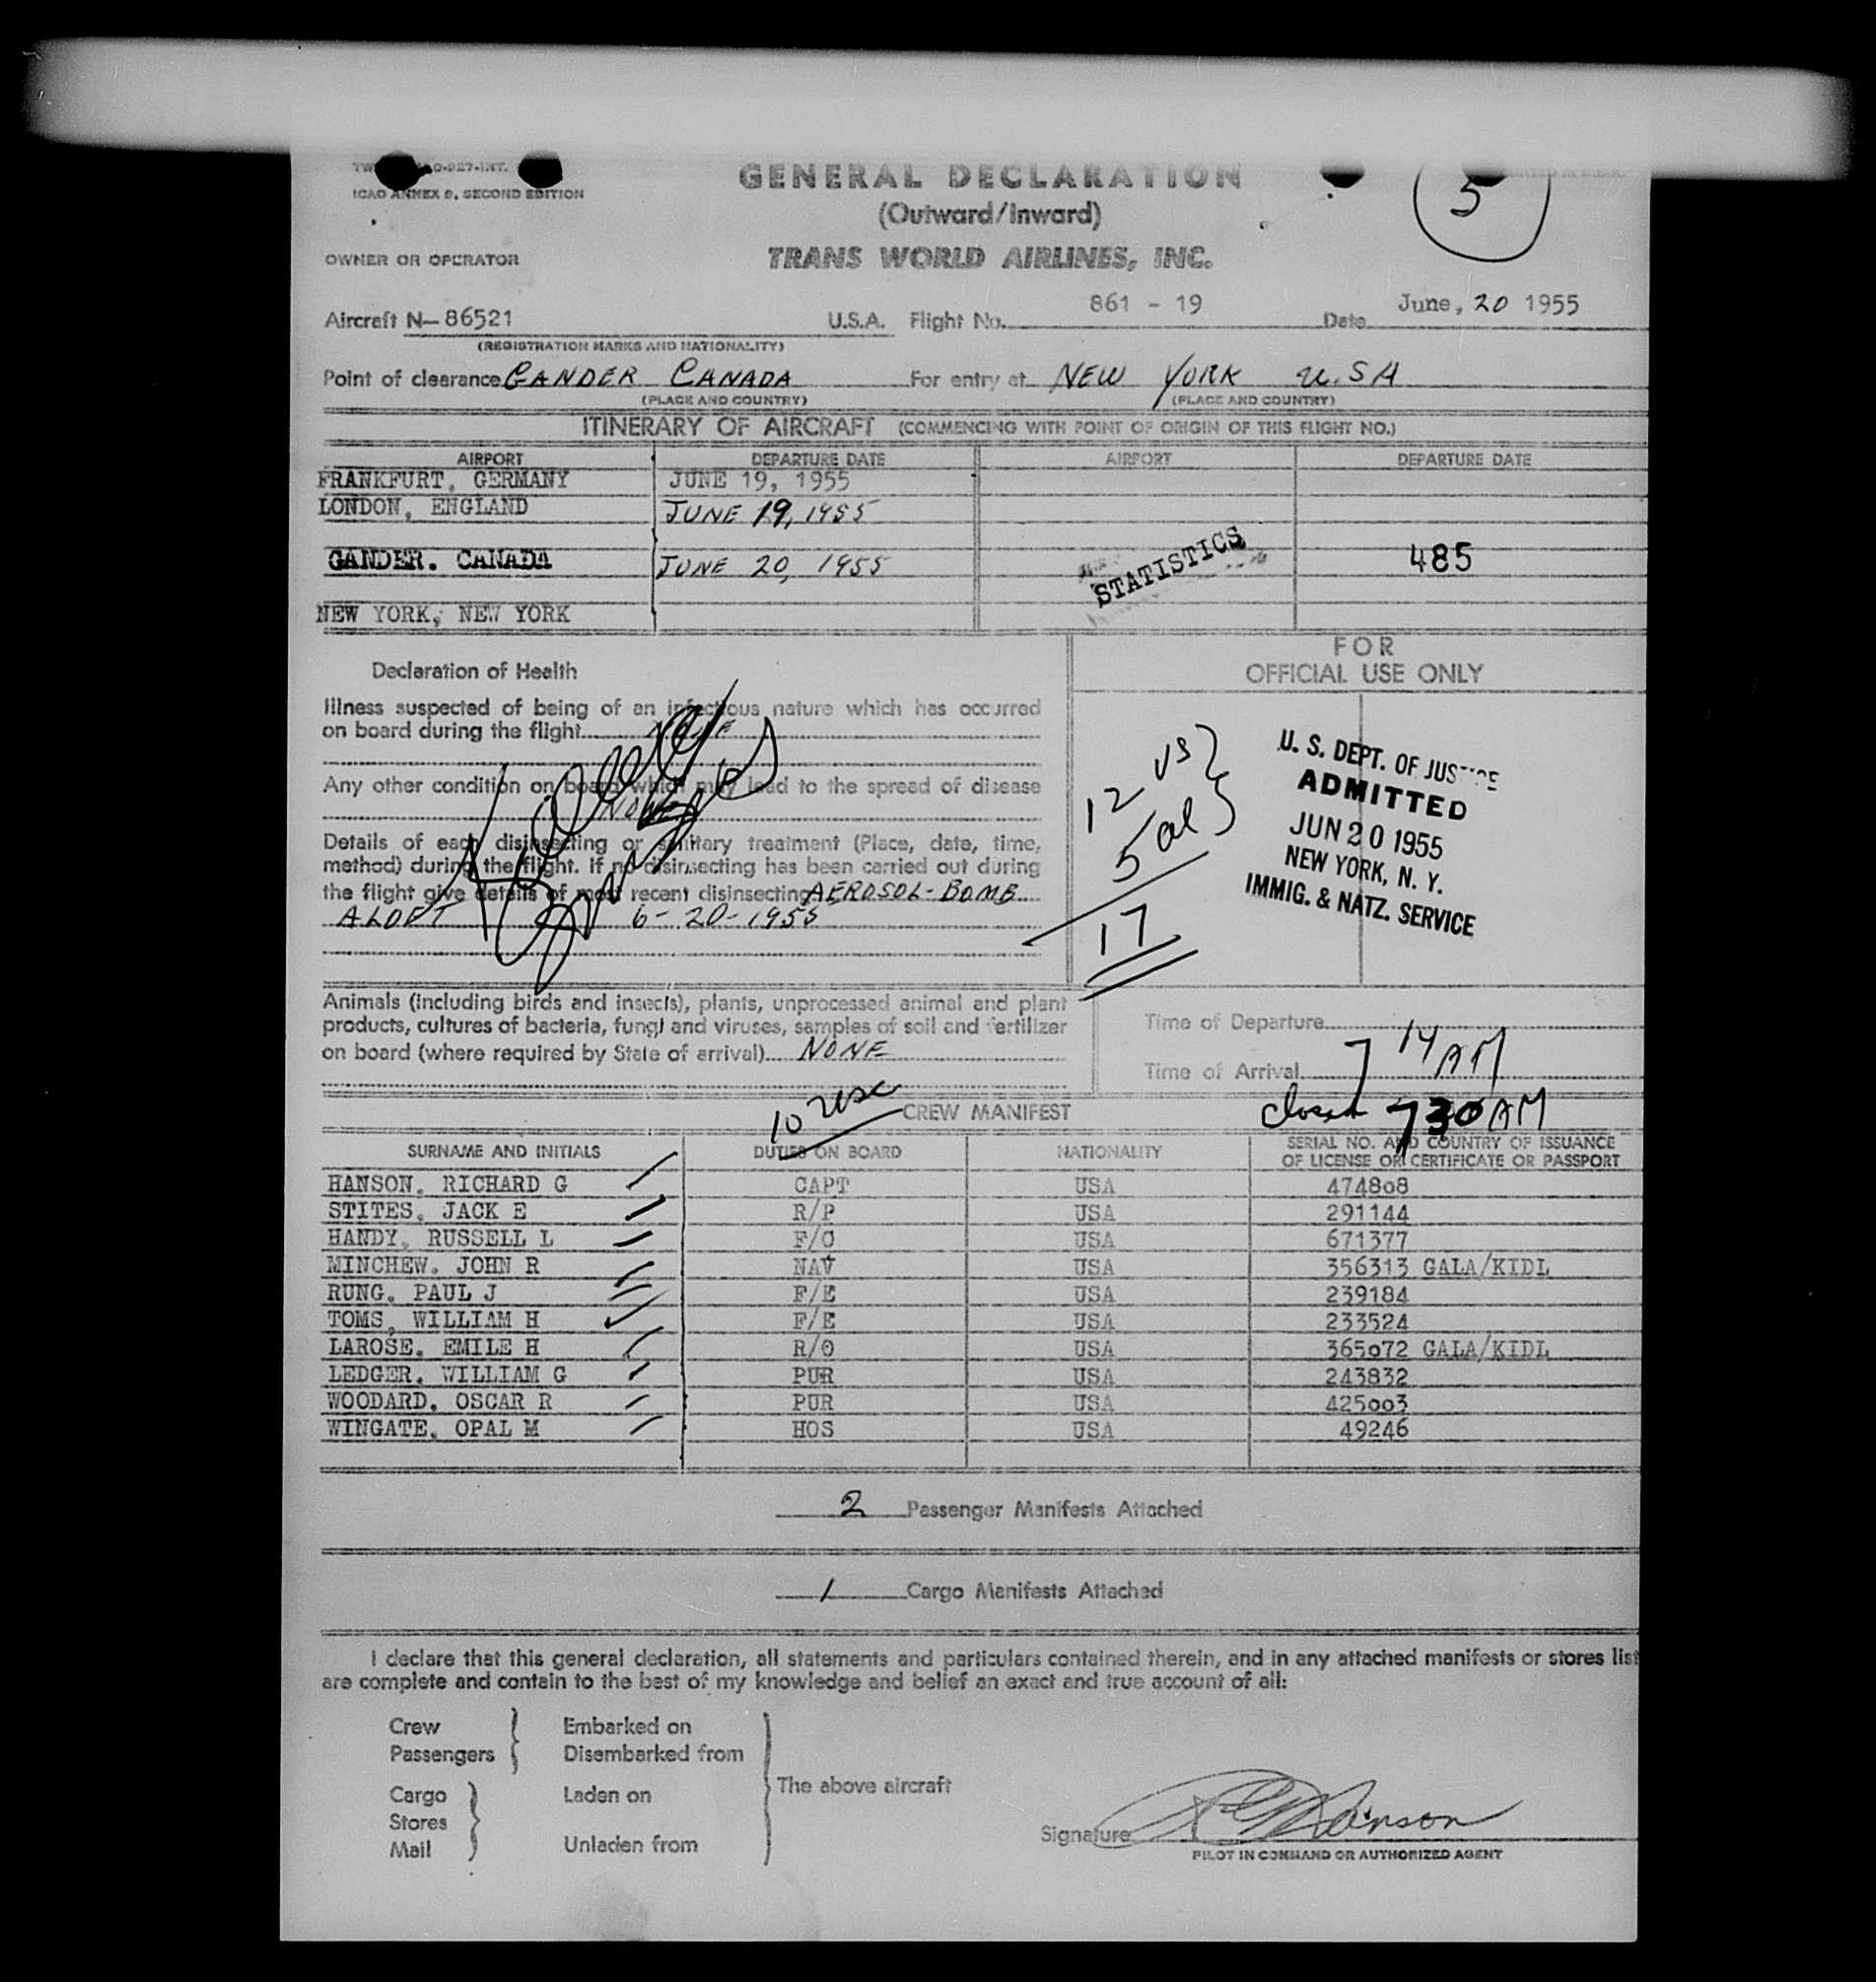 ICAO ANNEX 9, SECOND EDITION
GENERAL DECLARATION
(Outward/Inward)
5
OWNER OR OPERATOR
TRANS WORLD AIRLINES, INC.
Aircraft N-86521 U.S.A. Flight No. 861 - 19 Date June, 20 1955
(REGISTRATION MARKS AND NATIONALITY)
Point of clearance GANDER CANADA For entry at NEW YORK U.SA
(PLACE AND COUNTRY) (PLACE AND COUNTRY)
ITINERARY OF AIRCRAFT (COMMENCING WITH POINT OF ORIGIN OF THIS FLIGHT NO.)
AIRPORT DEPARTURE DATE AIRPORT DEPARTURE DATE
FRANKFURT, GERMANY JUNE 19, 1955
LONDON, ENGLAND JUNE 19, 1955
GANDER. CANADA JUNE 20, 1955 STATISTICS 485
NEW YORK, NEW YORK
FOR
OFFICIAL USE ONLY
Declaration of Health
Illness suspected of being of an infectious nature which has occurred
on board during the flight NONE
Any other condition on board which may lead to the spread of disease
NONE
Details of each disinsecting or sanitary treatment (Place, date, time,
method) during the flight. If no disinsecting has been carried out during
the flight give details of most recent disinsecting AEROSOL-BOMB
ALOFT 6-20-1955
12 US
5 al
17
U. S. DEPT. OF JUSTICE
ADMITTED
JUN 20 1955
NEW YORK, N. Y.
IMMIG. & NATZ. SERVICE
Animals (including birds and insects), plants, unprocessed animal and plant
products, cultures of bacteria, fungi and viruses, samples of soil and fertilizer
on board (where required by State of arrival) NONE
Time of Departure
Time of Arrival 714 AM
closed 730 AM
10 usc
CREW MANIFEST
SURNAME AND INITIALS DUTIES ON BOARD NATIONALITY SERIAL NO. AND COUNTRY OF ISSUANCE
OF LICENSE OR CERTIFICATE OR PASSPORT
HANSON, RICHARD G CAPT USA 474808
STITES, JACK E R/P USA 291144
HANDY, RUSSELL L F/O USA 671377
MINCHEW. JOHN R NAV USA 356313 GALA/KIDL
RUNG, PAUL J F/E USA 239184
TOMS, WILLIAM H F/E USA 233524
LAROSE. EMILE H R/O USA 365072 GALA/KIDL
LEDGER, WILLIAM G PUR USA 243832
WOODARD, OSCAR R PUR USA 425003
WINGATE, OPAL M HOS USA 49246
2 Passenger Manifests Attached
1 Cargo Manifests Attached
I declare that this general declaration, all statements and particulars contained therein, and in any attached manifests or stores list
are complete and contain to the best of my knowledge and belief an exact and true account of all:
Crew Embarked on
Passengers Disembarked from
The above aircraft
Cargo Laden on
Stores
Mail Unladen from
Signature RG Hanson
PILOT IN COMMAND OR AUTHORIZED AGENT